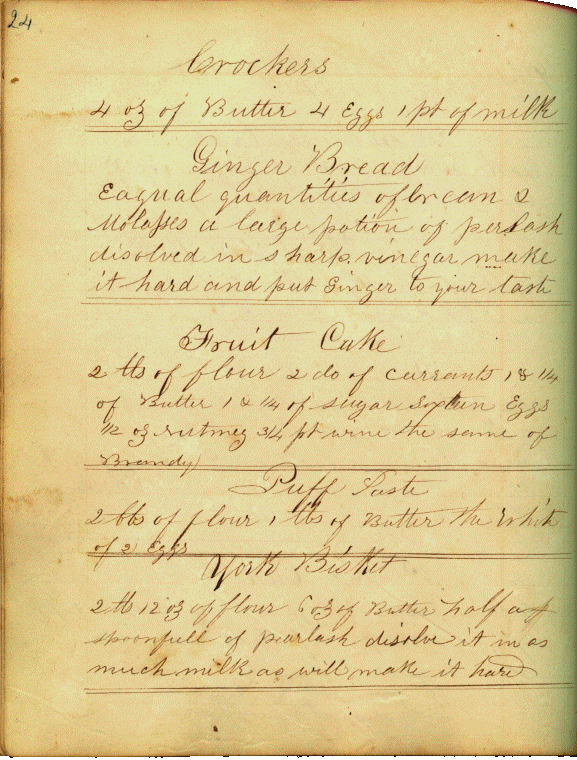 24
Crockers
4 oz of Butter 4 Eggs 1 pt of milk
Ginger Bread
Eaqual quantities of crean &
Molasses a large potion of perlash
disolved in sharp vinegar make
it hard and put Ginger to your taste
Fruit Cake
2 lbs of flour 2 do of currants 1 & 1/4
of Butter 1 & 1/4 of sugar Sixteen Eggs
1/2 oz Nutmeg 3/4 pt wine the same of
Brandy
Puff Paste
2 lbs of flour 1 lbs of Butter the white
of 2 Eggs
York Bisket
2 lb 12 oz of flour 6 oz of Butter half a
spoonfull of pearlash disolve it in as
much milk as will make it hard